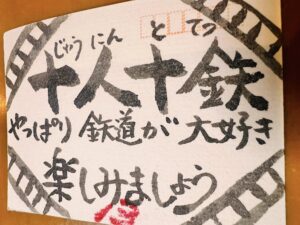 じゅうにん とてつ
十人十鉄
やっぱり鉄道が大好き
楽しみましょう